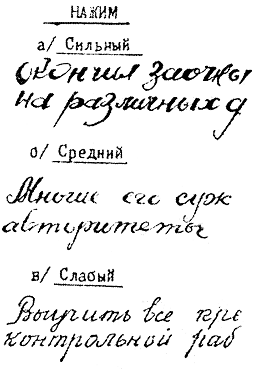 НАЖИМ
а/ Сильный
окончил заочны
на различных д
о/ Средний
Многие его суж
авторитеты
в/ Слабый
Выучить все пре
контрольной раб